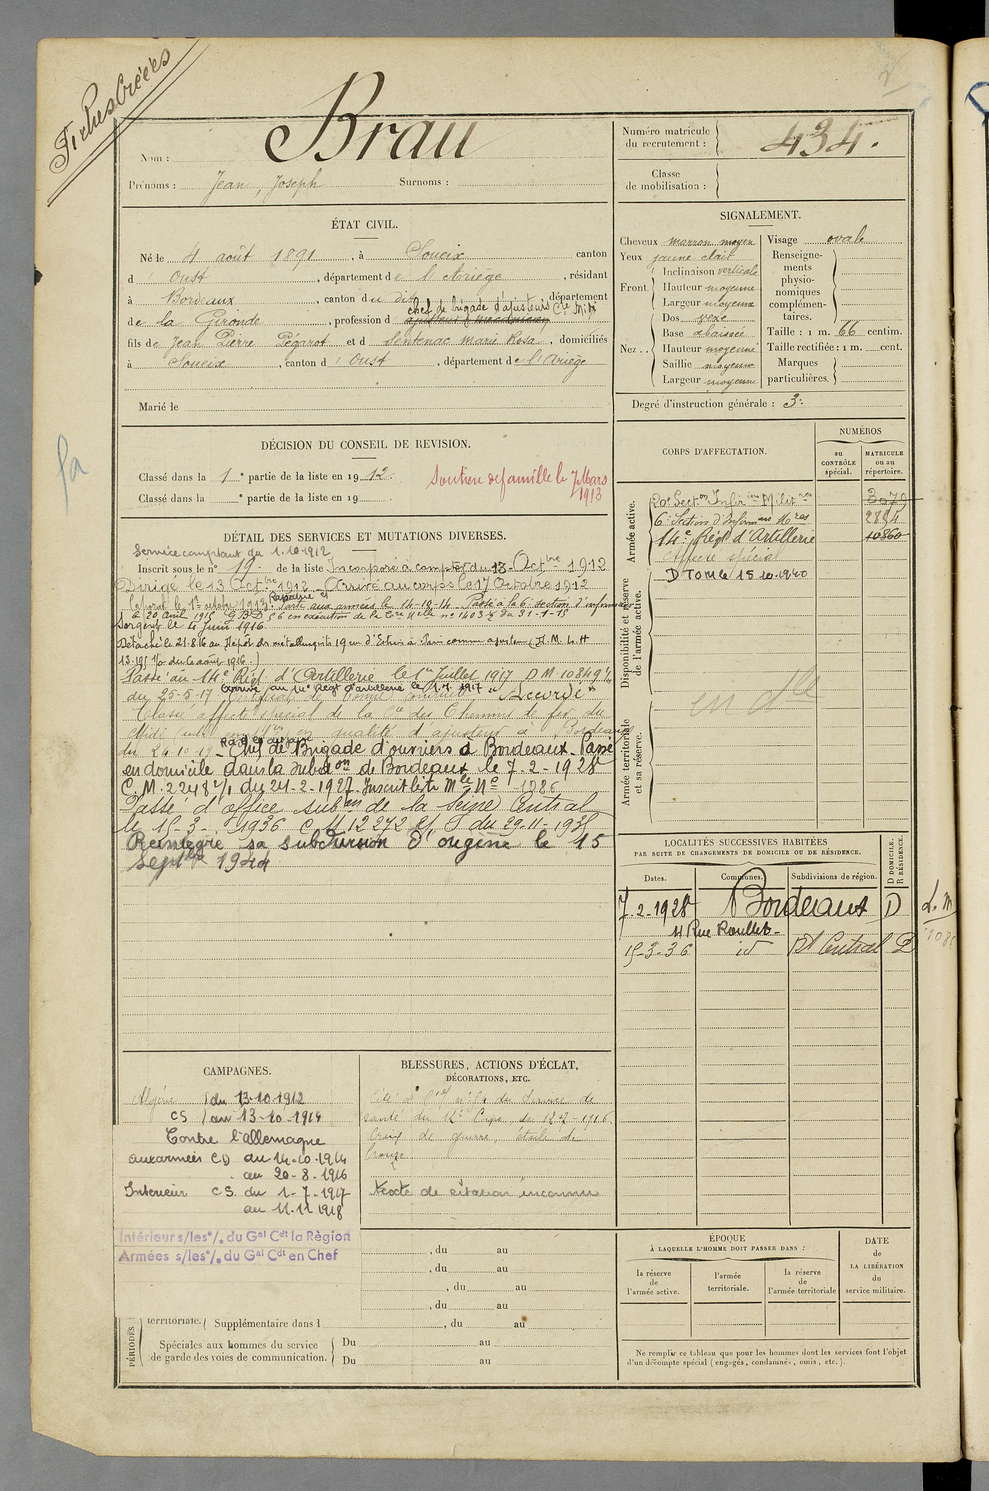 Fiches Créées
Nom : Brau
Prénoms : Jean, Joseph Surnoms :
Numéro matricule du recrutement : 434.
Classe de mobilisation :
ÉTAT CIVIL.
Né le 4 août 1891, à Soueix canton
d' Oust, département de l'Ariège, résidant
à Bordeaux, canton du dit, département
chef de brigade d'ajusteurs Cie Midi
de la Gironde, profession d ajusteur mécanicien
fils de Jean Pierre Pégarot et d Sentenac Marie Rosa, domiciliés
à Soueix, canton d' Oust, département de l'Ariège
Marié le
SIGNALEMENT.
Cheveux marron moyen
Yeux jaune clair
Front. Inclinaison verticale
Hauteur moyenne
Largeur moyenne
Nez . . Dos vexe
Base abaissée
Hauteur moyenne
Saillie moyenne
Largeur moyenne
Visage ovale
Renseignements physionomiques complémentaires.
Taille : 1 m. 66 centim.
Taille rectifiée : 1 m. cent.
Marques particulières.
Degré d'instruction générale : 3.
DÉCISION DU CONSEIL DE REVISION.
Classé dans la 1e partie de la liste en 1912.
Classé dans la e partie de la liste en 19 .
Soutien de famille le 7 Mars 1913
CORPS D'AFFECTATION.
NUMÉROS
au CONTRÔLE spécial.
MATRICULE ou au répertoire.
Armée active.
20e Secton Infirm Milit res 3079
6e Section d'Infirm Mres 2894
14e Régt d'Artillerie 10860
Disponibilité et réserve de l'armée active.
Affecté spécial
D TOM le 15 10.1940
en dle
Armée territoriale et sa réserve.
DÉTAIL DES SERVICES ET MUTATIONS DIVERSES.
Service comptant du 1.10.1912
Inscrit sous le n° 19. de la liste Incorporé à compter du 13 Octbre 1912
Dirigé le 13 Octbre 1912. Arrivé au corps le 17 Octobre 1912
Caporal le 1er octobre 1913. Parti aux armées le 14-10-14. Passé à la 6e section d'infirmiers
Sergent le 4 Juin 1916
Passé au 14e Régt d'Artillerie le 1er Juillet 1917 DM 10849 1/4
du 25-5-17 Certificat de bonne conduite "Accordé"
Classé affecté spécial de la Cie des Chemins de fer du
Midi en qualité d'ajusteur à Bordeaux
Chef de Brigade d'ouvriers à Bordeaux. Passé
en domicile dans la Subdon de Bordeaux le 7-2-1928
C.M. 2248 1/1 du 24-2-1928. Inscrit liste Mle No 1086
Passé d'office subon de la Seine Central
le 15-3-1936 C M 12272 du 29-11-1935
Réintégré sa subdivision d'origine le 15
Septbre 1944
LOCALITÉS SUCCESSIVES HABITÉES
PAR SUITE DE CHANGEMENTS DE DOMICILE OU DE RÉSIDENCE.
Dates. Communes. Subdivisions de région. D DOMICILE. R RÉSIDENCE.
7-2-1928 Bordeaux D
4 Rue Roullet
15-3-36 id Bt Central D
L. M
1086
CAMPAGNES.
Algérie du 13-10-1912
CS au 13-10-1914
Contre l'allemagne
aux armées CD du 14-10-1914
au 20-8-1916
Intérieur CS. du 1-7-1917
au 11-11-1918
Intérieur s/les°/. du Gal Cdt la Région
Armées s/les°/. du Gal Cdt en Chef
BLESSURES, ACTIONS D'ÉCLAT,
DÉCORATIONS, ETC.
Cité à l'O/ n° 51 du Service de
santé du 12e Corps du 12-2-1916
Croix de guerre, étoile de
bronze
Texte de citation inconnu
, du au
, du au
, du au
, du au
PÉRIODES
territoriale. Supplémentaire dans l , du au
Spéciales aux hommes du service de garde des voies de communication. Du au
Du au
ÉPOQUE
À LAQUELLE L'HOMME DOIT PASSER DANS :
la réserve de l'armée active.
l'armée territoriale.
la réserve de l'armée territoriale
DATE de LA LIBÉRATION du service militaire.
Ne remplir ce tableau que pour les hommes dont les services font l'objet
d'un décompte spécial (engagés, condamnés, omis, etc.).